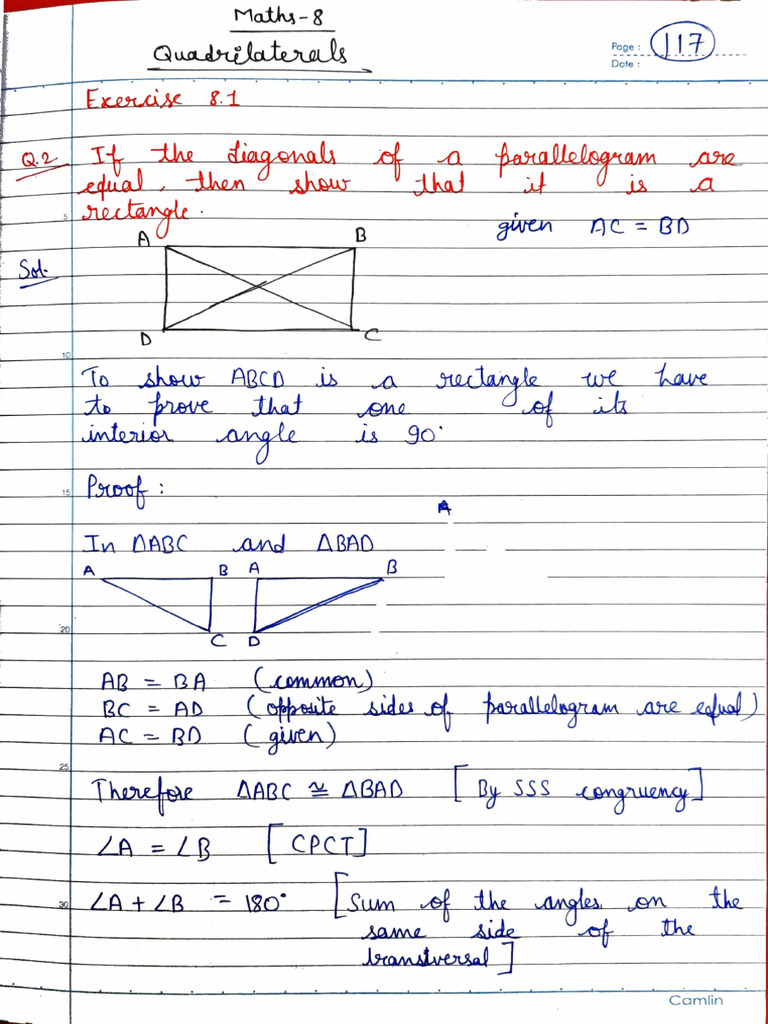 Maths-8
Quadrilaterals
Page : 117
Date :
Exercise 8.1
Q.2 If the diagonals of a parallelogram are
equal, then show that it is a
rectangle.
given AC = BD
Sol.
A B
D C
To show ABCD is a rectangle we have
to prove that one of its
interior angle is 90°
Proof :
A
In ΔABC and ΔBAD
A B A B
C D
AB = BA (common)
BC = AD (opposite sides of parallelogram are equal)
AC = BD (given)
Therefore ΔABC ≅ ΔBAD [By SSS congruency]
∠A = ∠B [CPCT]
∠A + ∠B = 180° [Sum of the angles on the
same side of the
transversal]
5
10
15
20
25
30
Camlin